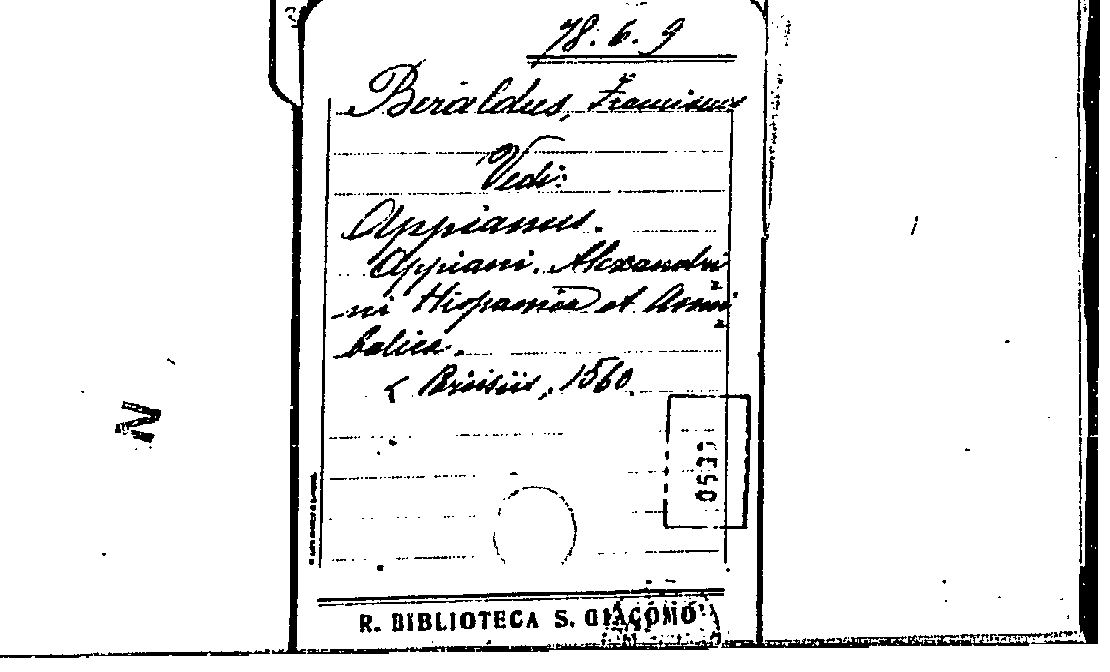 78. 6. 9
Beraldus, Franciscus
Vedi:
Appianus.
Appiani. Alexandri
ni Hispanica et Anni
balica.
Parisiis, 1560.
R. BIBLIOTECA S. GIACOMO